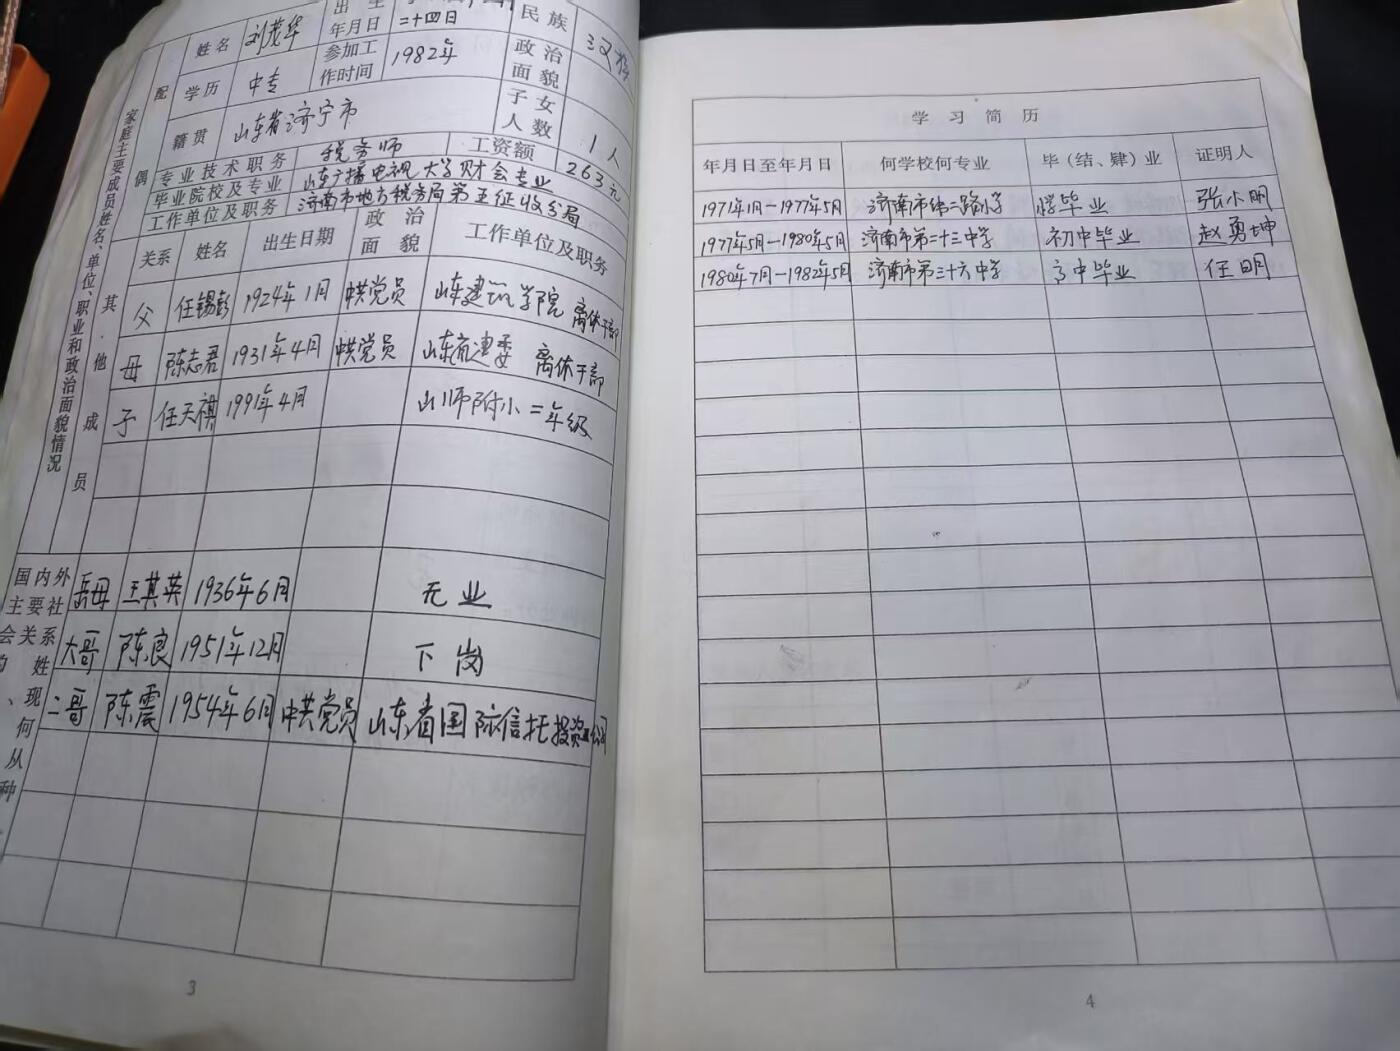 姓名 刘茂华 出生年月日 二十四日 民族 汉族
学历 中专 参加工作时间 1982年 政治面貌
籍贯 山东省济宁市 子女人数 1人
专业技术职务 税务师 工资额 263元
毕业院校及专业 山东广播电视大学财会专业
工作单位及职务 济南市地方税务局第五征收分局
配偶
家庭主要成员姓名、单位、职业和政治面貌情况
其他成员
关系 姓名 出生日期 政治面貌 工作单位及职务
父 任锡彭 1924年1月 中共党员 山东建筑学院 离休干部
母 陈志君 1931年4月 中共党员 山东省建委 离休干部
子 任天祺 1991年4月 山师附小二年级
国内外
主要社
会关系
姓
、现
何
从
种
岳母 王其英 1936年6月 无业
大哥 陈良 1951年12月 下岗
二哥 陈震 1954年6月 中共党员 山东省国际信托投资公司
3
学习简历
年月日至年月日 何学校何专业 毕(结、肄)业 证明人
1971年1月-1977年5月 济南市纬二路小学 小学毕业 张小明
1977年5月-1980年5月 济南市第二十三中学 初中毕业 赵勇坤
1980年7月-1982年5月 济南市第三十六中学 高中毕业 任明
4